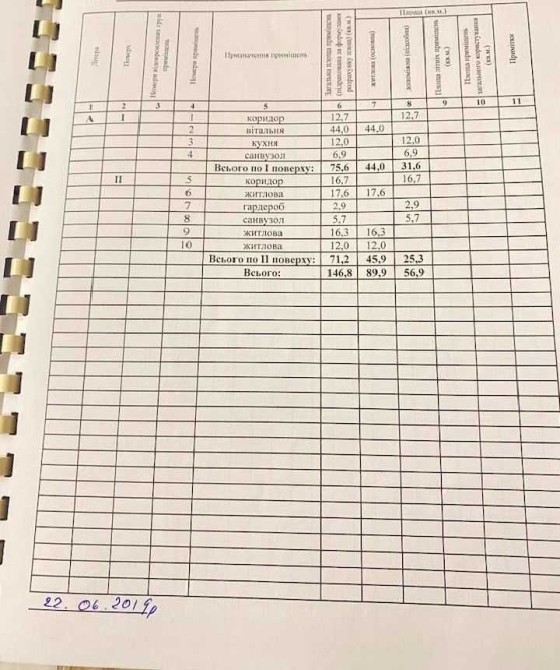 Площа (кв.м.)
Літера
Поверх
Номери відокремлених груп приміщень
Номери приміщень
Призначення приміщень
Загальна площа приміщень (підрахована за формулами розрахунку площ) (кв.м)
житлова (основна)
допоміжна (підсобна)
Площа літніх приміщень (кв.м)
Площа приміщень загального користування (кв.м.)
Примітки
1 2 3 4 5 6 7 8 9 10 11
А I 1 коридор 12,7 12,7
2 вітальня 44,0 44,0
3 кухня 12,0 12,0
4 санвузол 6,9 6,9
Всього по I поверху: 75,6 44,0 31,6
II 5 коридор 16,7 16,7
6 житлова 17,6 17,6
7 гардероб 2,9 2,9
8 санвузол 5,7 5,7
9 житлова 16,3 16,3
10 житлова 12,0 12,0
Всього по II поверху: 71,2 45,9 25,3
Всього: 146,8 89,9 56,9
22. 06. 2019р